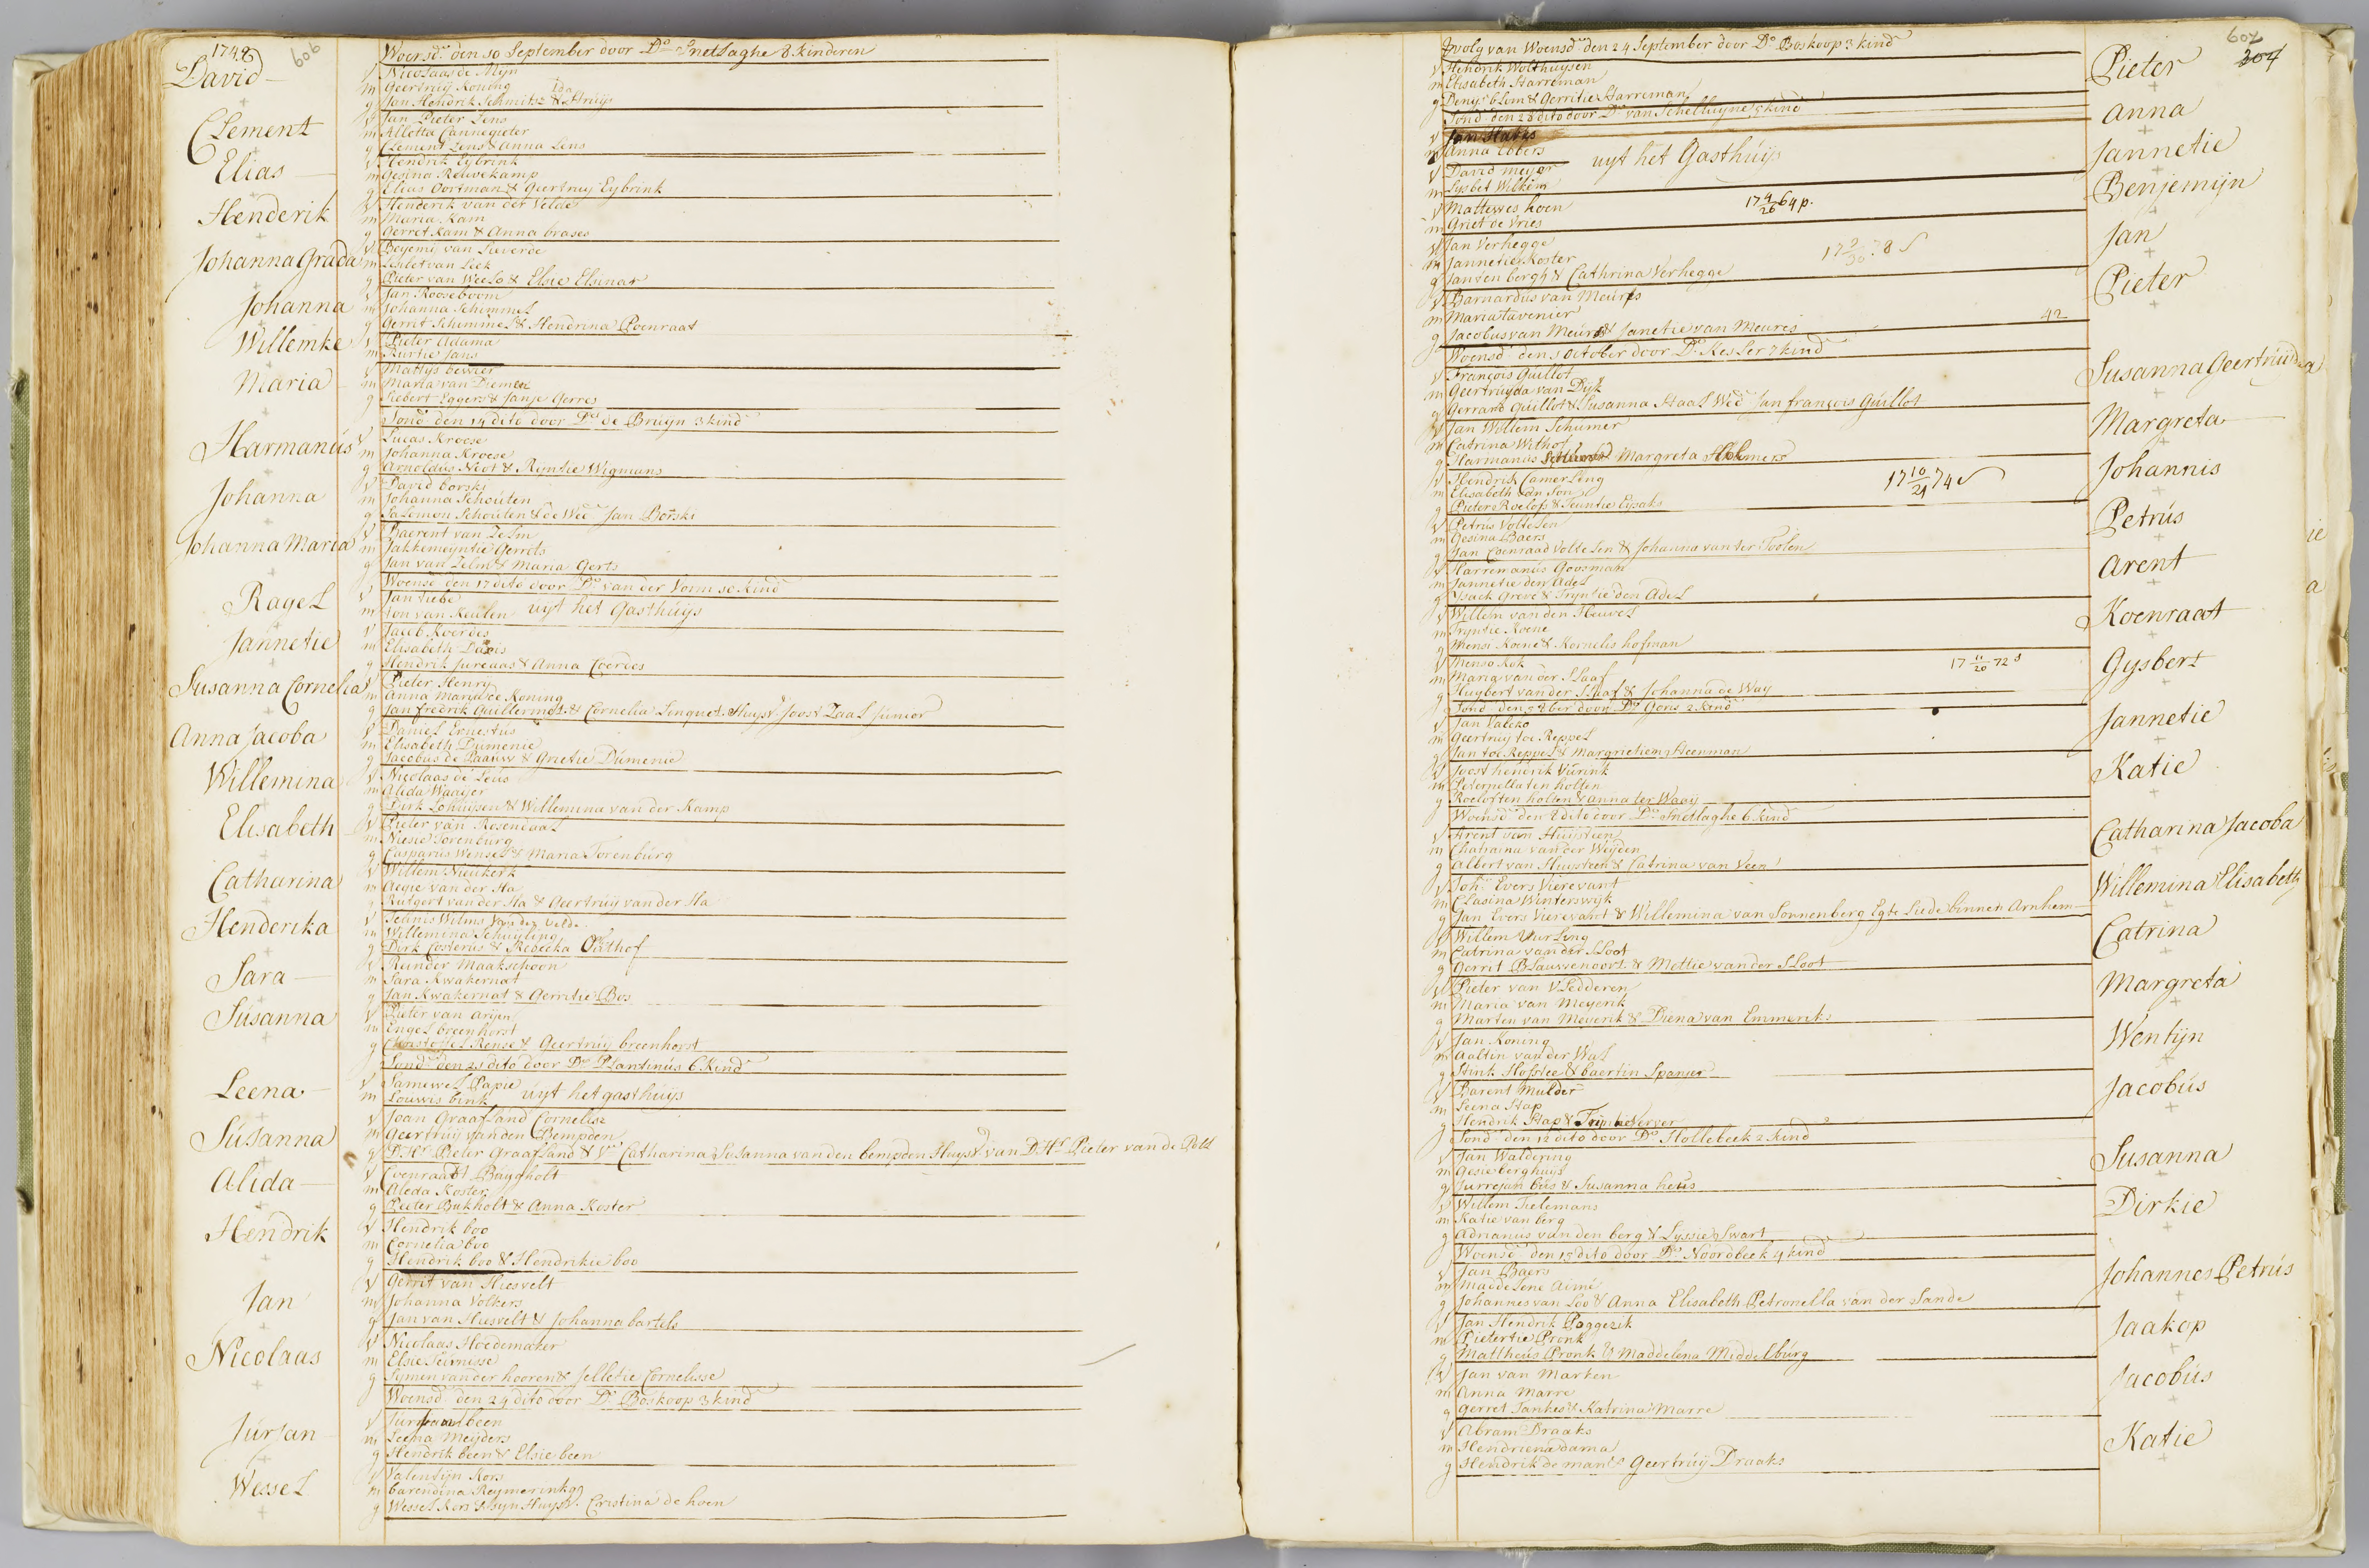 1748 606
Woensd. den 10 September door Do Snetlaghe 8 kinderen
David
v Nicolaas de Mijn
m Geertruij Koning
g Jan Hendrik Schmitsz & Ida Struijs
Clement
v Jan Pieter Zens
m Alletta Cannegieter
g Clement Zens & Anna Lens
Elias
v Hendrik Eybrink
m Gesina Reuvekamp
g Elias Oortman & Geertruy Eybrink
Henderik
v Henderik van der Velde
m Maria Kam
g Gerret Kam & Anna brases
Johanna Grada
v Beyemi van Lieverde
m Lisbet van Leek
g Pieter van Weelo & Elsie Elsinar
Johanna
v Jan Rooseboom
m Johanna Schimmel
g Gerrit Schimmel & Hendrina Poenraat
Willemke
v Pieter Adama
m Aurtie Jans
Maria
v Mattys bewier
m Maria van Diemen
g Siebert Eggers & Janje Gerres
Sond den 14 dito door Do de Bruijn 3 kind
Harmanús
v Lucas Kroese
m Johanna Kroese
g Arnoldus Noot & Ryntie Wigmans
Johanna
v David borski
m Johanna Schouten
g Salemon Schouten & de Wed Jan Borski
Johanna Maria
v Baerent van Zelm
m Jakkemeyntie Gerrets
g Jan van Zelm & Maria Gerts
Woensd den 17 dito door Do van der Vorm 10 kind
Ragel
v Jan tiebe
m Jon van Keulen uyt het Gasthúijs
Jannetie
v Jacob Koerdes
m Elisabeth Davis
g Hendrik Jureaas & Anna Coerdes
Susanna Cornelia
v Pieter Henry
m Anna Maria de Koning
g Jan fredrik Guillermot & Cornelia Linquet Huysv. Joost Zaal Junior
Anna Jacoba
v Daniel Ernestus
m Elisabeth Dumenie
g Jacobus de Paauw & Grietie Dúmenie
Willemina
v Nicolaas de Leús
m Alida Waayer
g Dirk Lohuijsen & Willemina van der Kamp
Elisabeth
v Pieter van Rosendaal
m Niesie Torenburg
g Casparus Wensel & Maria Torenbúrg
Catharina
v Willem Nieukerk
m Aegie van der Ha
g Rutgert van der Ha & Geertrúij van der Ha
Henderika
v Teunis Wilms van der Velde
m Willemina Schuyling
g Dirk Costerus & Rebecka Oathof
Sara
v Reinder Maakschoon
m Sara Kwakernat
g Jan Kwakernat & Gerritie Bos
Súsanna
v Pieter van Arijen
m Engel breenhorst
g Christoffel Rense & Geertrúij breenhorst
Sond den 21 dito door Do Plantinús 6 Kind
Leena
v Samewel Papie
m Louwis bink uyt het gasthúijs
Súsanna
v Joan Graafland Cornelisz
m Geertruij van den Bempden
g D. Hr Pieter Graafland & Vr Catharina Susanna van den bempden Huysv van D. Hr Pieter van de Poll
Alida
v Coenraadt Búggholt
m Aleda Koster
g Pieter Bukholt & Anna Koster
Hendrik
v Hendrik boo
m Cornelia boo
g Hendrik boo & Hendrikie boo
Jan
v Gerrit van Hiesvelt
m Johanna Volkers
g Jan van Hiesvelt & Johanna bartels
Nicolaas
v Nicolaas Hoedemaker
m Elsie Teúnisse
g Symen van der hooren & Jelletie Cornelisse
Woensd den 24 dito door Do Boskoop 3 kind
Júrjan
v Júrjaan been
m Leena Meijders
g Hendrik been & Elsie been
Wessel
v Valentijn Kors
m barendina Reymerinkgg
g Wessel Kors & syn Huysv. Cristina de hoen
607 304
Vervolg van Woensd den 24 September door Do Boskoop 3 kind
v Hendrik Wolthuysen Pieter
m Elisabeth Harreman
g Denys blom & Gerritie Harreman
Sond den 28 dito door Do van Schelluyne 5 kind
v Jan Harys Anna
m Anna Ebbers uyt het Gasthúijs
v David meyer Jannetie
m Lysbet Wilkem
v Mattewes hoen 17 9/26 64 p. Benjemijn
m Griet de Vries
v Jan Verhegge 17 9/30 78 Jan
m Jannetie Koster
g Jan ten bergh & Cathrina Verhegge
v Barnardus van Meúrs Pieter
m Maria tavenier
g Jacobus van Meúrs & Janetie van Meures 42
Woensd den 1 October door Do Kesler 7 kind
v François Guillot Susanna Geertruida
m Geertruyda van Dyk
g Gerrard Guillot & Susanna Staal Wed Jan françois Guillot
v Jan Willem Schumer Margreta
m Catrina Withof
g Harmanus Margreta
v Hendrik Camerling 17 10/21 74 Johannis
m Elisabeth van Son
g Pieter Roelofs & Teuntie Eysaks
v Petrus Voltelen Petrús
m Gesina Baers
g Jan Coenraad Voltelen & Johanna van ter Toolen
v Harremanús Goosman Arent
m Jannetie den Adel
g Ysack Greve & Tryntie den Adel
v Willem van den Heuvel Koenraat
m Tryntie Koene
g Mensi Koene & Kornelis hofman
v Menso Kok 17 11/20 72 Gysbert
m Maria van der Slaaf
g Huybert van der Slaaf & Johanna de Way
Sond den 5 8ber door Do Goris 2 kind
v Jan Valcko Jannetie
m Geertruij toe Reppel
g Jan toe Reppel & Margrietiem Steenman
v Joost hendrik Vúrink Katie
m Peternella ten holten
g Roelof ten holten & Anna ter Waay
Woensd den 8 dito door Do Snetlaghe 6 kind
v Arent van Huijsteen Catharina Jacoba
m Chatarina van der Weyden
g Albert van Huysteen & Catrina van Veen
v Joh. Evers Vierevant Willemina Elisabeth
m Clasina Winterswyk
g Jan Evers Vierevandt & Willemina van Sonnenberg Egte Liede binnen Arnhem
v Willem Vurling Catrina
m Catrina van der Sloot
g Gerrit Blauwenoort & Mettie van der Sloot
v Pieter van Vledderen Margreta
m Maria van Meyerik
g Marten van Meyerik & Diena van Emmeriks
v Jan Koning Wentijn
m Aaltin van der Wal
g Hink Hosslee & baertin Spanier
v Barent Mulder Jacobús
m Leena Stap
g Hendrik Stap & Trijntie Verver
Sond den 12 dito door Do Hollebeek 2 kind
v Jan Waldering Susanna
m Gesie berghuys
g Jurrejan bús & Susanna heüs
v Willem Tielemans Dirkie
m Katie van berg
g Adrianus van den berg & Lyssie Swart
Woensd den 15 dito door Do Noordbeek 4 kind
v Jan Baers Johannes Petrús
m Maddelene Aimé
g Johannes van Loo & Anna Elisabeth Petronella van der Sande
v Jan Hendrik Poggezik Jaakop
m Pietertie Pronk
g Mattheus Pronk & Maddelena Middelbúrg
v Jan van Marken Jacobús
m Anna Marre
g Gerret Jankes & Katrina Marre
v Abram Draaks Katie
m Hendriena dama
g Hendrik de mants Geertrúij Draaks